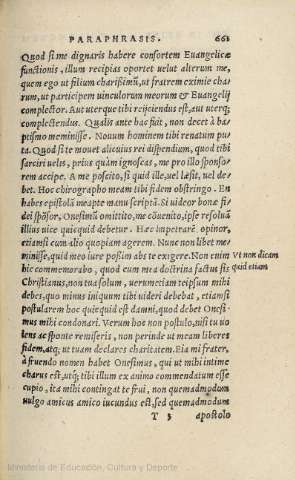 PARAPHRASIS. 661
Quod si me dignaris habere consortem Euangelicæ
functionis, illum recipias oportet velut alterum me,
quem ego ut filium charissimum, ut fratrem eximie cha
rum, ut participem uinculorum meorum & Euangelij
complector. Aut uterque tibi reijciendus est, aut uterq;
complectendus. Qualis ante hac fuit, non decet à ba
ptismo meminisse. Nouum hominem tibi renatum pu
ta. Quod si te mouet alicuius rei dispendium, quod tibi
sarciri uelis, prius quàm ignoscas, me pro illo sponso
rem accipe. A me poscito, si quid ille, uel læsit, uel de
bet. Hoc chirographo meam tibi fidem obstringo. En
habes epistolã meapte manu scriptã. Si uideor bonæ fi
dei spõsor, Onesimũ omittito, me cõuenito, ipse soluã
illius uice quicquid debetur. Hæc impetrarẽ opinor,
etiamsi cum alio quopiam agerem. Nunc non libet me
minisse, quid meo iure possim abs te exigere. Non enim Vt non dicam
hic commemorabo, quod cum mea doctrina factus sis quid etiam
Christianus, non tua solum, uerumetiam teipsum mihi
debes, quo minus iniquum tibi uideri debebat, etiamsi
postularem hoc quicquid est damni, quod debet Onesi
mus mihi condonari. Verum hoc non postulo, nisi tu uo
lens ac sponte remiseris, non perinde ut meam liberes
fidem, atq; ut tuam declares charitatem. Eia mi frater,
à fruendo nomen habet Onesimus, qui ut mihi intime
charus est, utq; tibi illum ex animo commendatum esse
cupio, ita mihi contingat te frui, non quemadmodum
uulgo amicus amico iucundus est, sed quemadmodum
T 3 apostolo
Ministerio de Educación, Cultura y Deporte